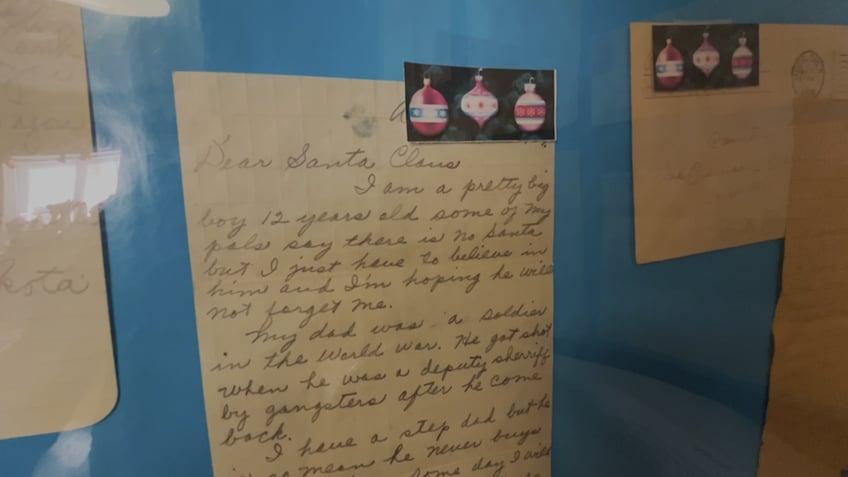 Dear Santa Claus
I am a pretty big
boy 12 years old some of my
pals say there is no Santa
but I just have to believe in
him and I'm hoping he will
not forget me.
My dad was a soldier
in the World War. He got shot
when he was a deputy sherriff
by gangsters after he come
back.
I have a step dad but he
mean he never buys
some day I will
kota